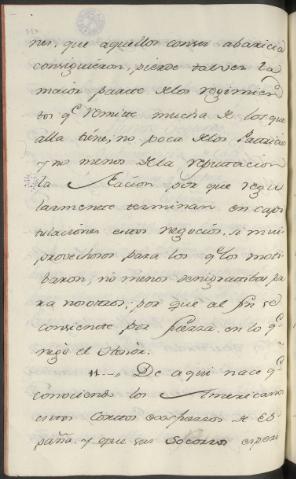 nes, que aquellos con su abaricia
consiguieron, pierde tal vez la
maior parte de los regimien
tos q.e remite mucha de los que
alla tiene, no poca de los
y no menos de la reputacion
la Nacion, por que regu
larmente terminan en capi
tulaciones estos negocios, si mui
provechosos para los q.e los moti
baron, no menos denigratibos pa
ra nosotros; por que al fin se
consiente por fuerza en lo q.e
nego el Otonor.
11.... De aqui nace q.e
conociendo los Americanos
estos cortos esfuerzos de Es
paña y que sus socorros